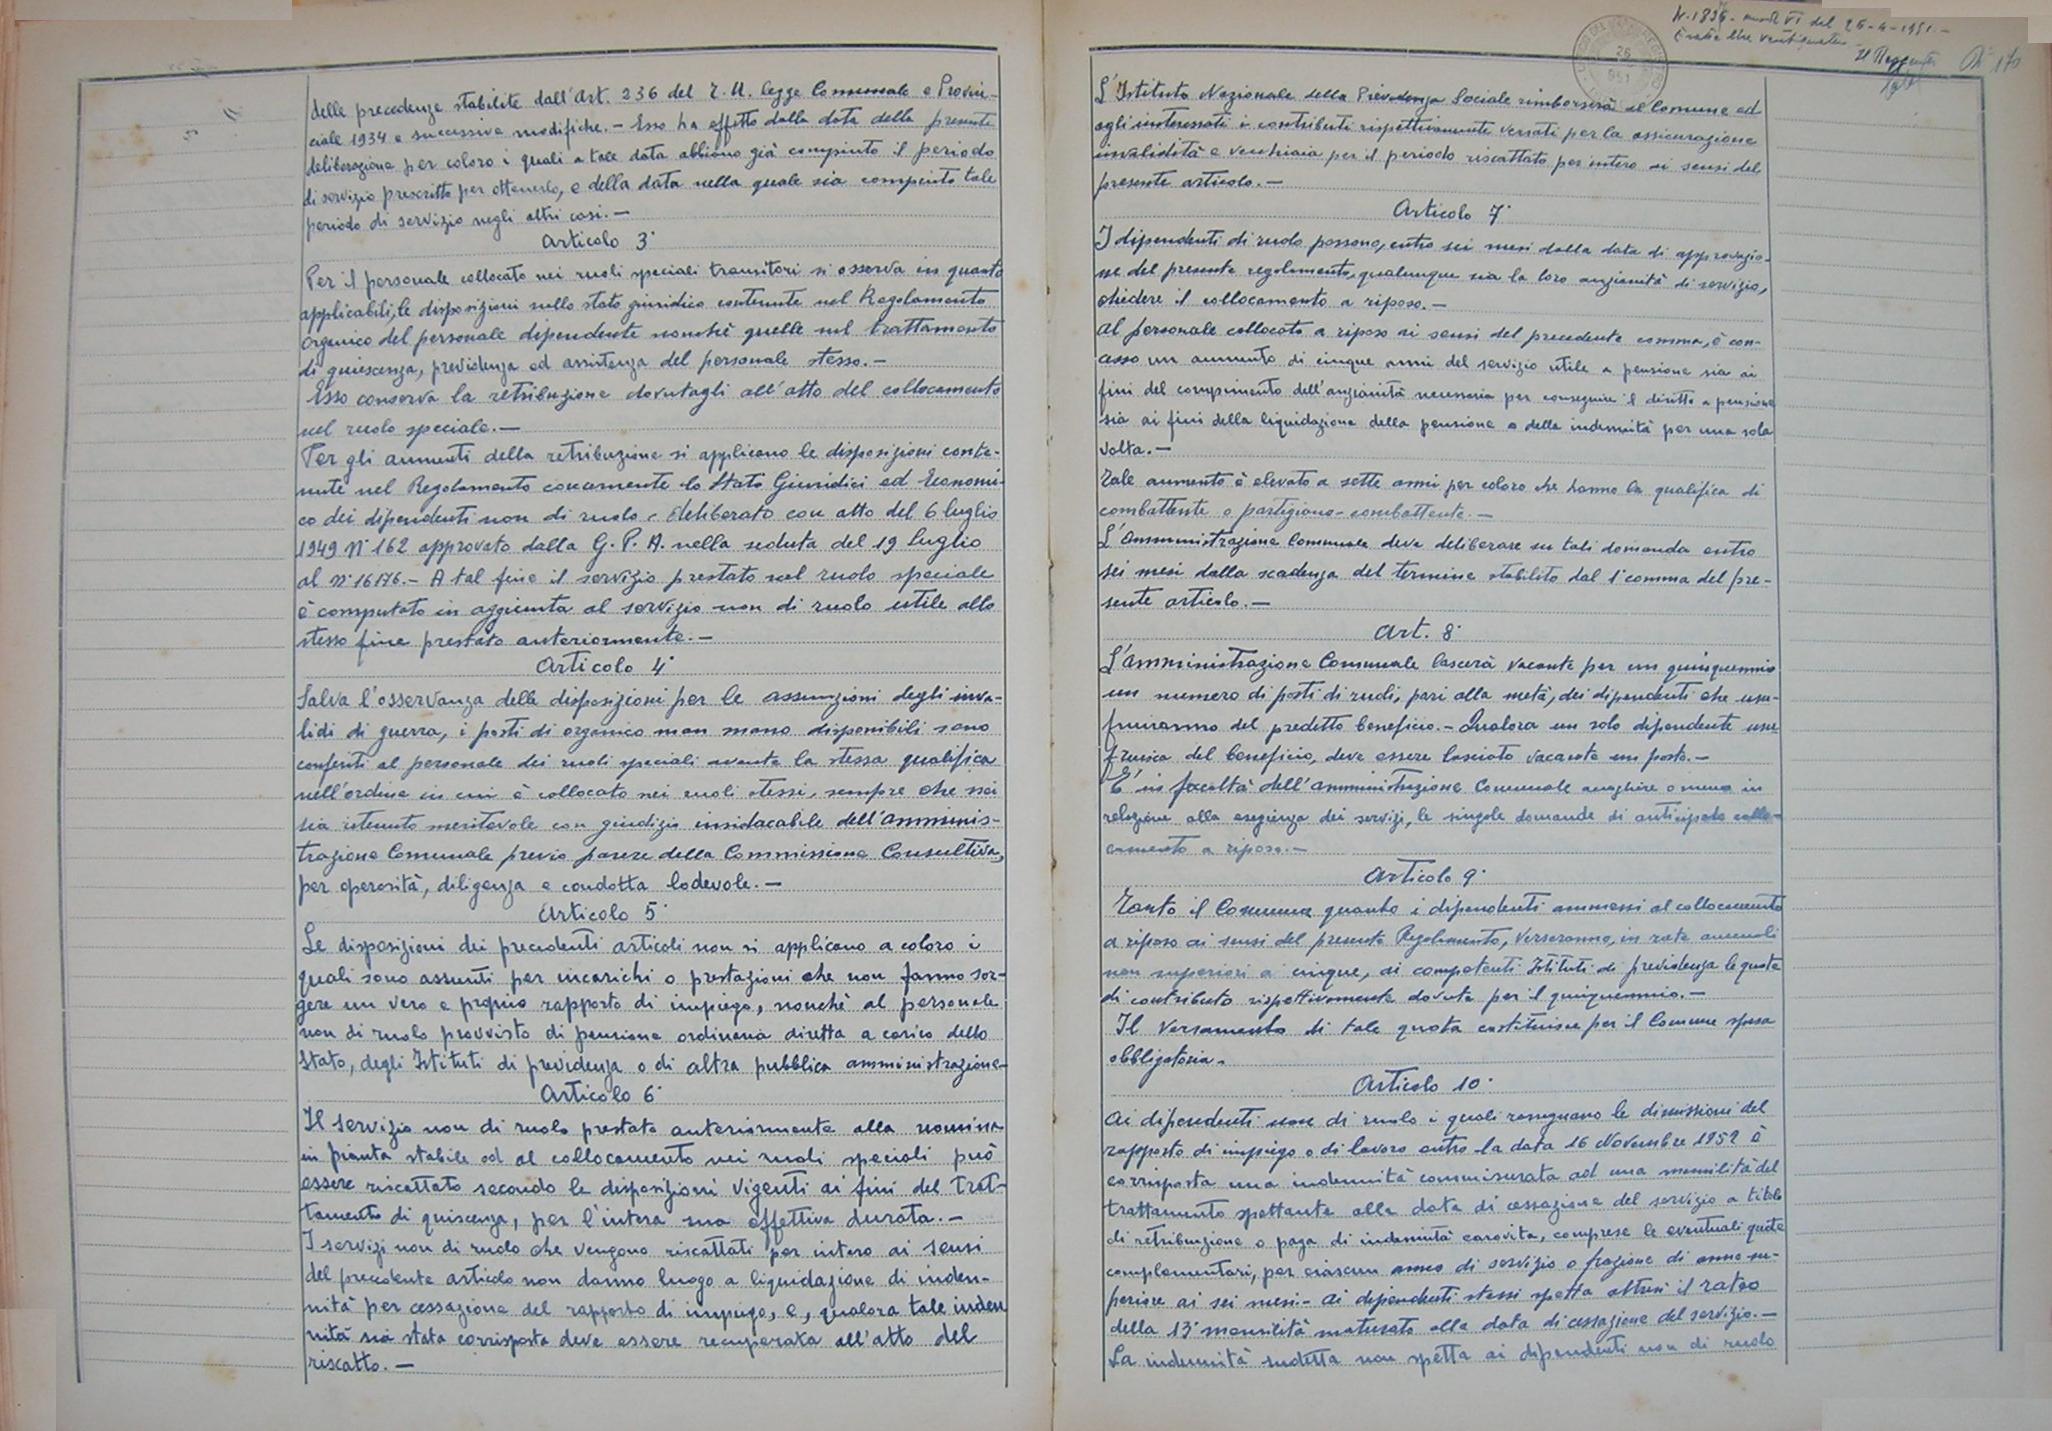 delle precedenze stabilite dall'Art. 236 del T. U. legge Comunale e Provin-
ciale 1934 e successive modifiche. - Esso ha effetto dalla data della presente
deliberazione per coloro i quali a tale data abbiano già compiuto il periodo
di servizio prescritto per ottenerlo, e della data nella quale sia compiuto tale
periodo di servizio negli altri casi. -
Articolo 3°
Per il personale collocato nei ruoli speciali transitori si osserva in quanto
applicabili, le disposizioni sullo stato giuridico contenute nel Regolamento
organico del personale dipendente nonchè quelle sul trattamento
di quiescenza, previdenza ed assistenza del personale stesso. -
Esso conserva la retribuzione dovutagli all'atto del collocamento
nel ruolo speciale. -
Per gli aumenti della retribuzione si applicano le disposizioni conte-
nute nel Regolamento concernente lo Stato Giuridici ed Economi-
co dei dipendenti non di ruolo deliberato con atto del 6 luglio
1949 N° 162 approvato dalla G. P. A. nella seduta del 19 luglio
al N° 16176. - A tal fine il servizio prestato nel ruolo speciale
è computato in aggiunta al servizio non di ruolo utile allo
stesso fine prestato anteriormente. -
Articolo 4°
Salva l'osservanza delle disposizioni per le assunzioni degli inva-
lidi di guerra, i posti di organico man mano disponibili sono
conferiti al personale dei ruoli speciali avente la stessa qualifica
nell'ordine in cui è collocato nei ruoli stessi, sempre che
sia ritenuto meritevole con giudizio insidacabile dell'Amminis-
trazione Comunale previo parere della Commissione Consultiva,
per operosità, diligenza e condotta lodevole. -
Articolo 5°
Le disposizioni dei precedenti articoli non si applicano a coloro i
quali sono assunti per incarichi o prestazioni che non fanno sor-
gere un vero e proprio rapporto di impiego, nonchè al personale
non di ruolo provvisto di pensione ordinaria diretta a carico dello
Stato, degli Istituti di previdenza o di altra pubblica amministrazione-
Articolo 6°
Il servizio non di ruolo prestato anteriormente alla nomina
in pianta stabile od al collocamento nei ruoli speciali può
essere riscattato secondo le disposizioni vigenti ai fini del trat-
tamento di quiscenza, per l'intera sua effettiva durata. -
I servizi non di ruolo che vengono riscattati per intero ai sensi
del precedente articolo non danno luogo a liquidazione di inden-
nità per cessazione del rapporto di impiego, e, qualora tale inden
nità sia stata corrisposta deve essere recuperata all'atto del
riscatto. -
N. 1836 VI del 26-4-1951. -
L'Istituto Nazionale della Previdenza Sociale rimborserà al Comune ed
agli interessati i contributi rispettivamente versati per la assicurazione
invalidità e vecchiaia per il periodo riscattato per intero ai sensi del
presente articolo. -
Articolo 7°
I dipendenti di ruolo possono, entro sei mesi dalla data di approvazio-
ne del presente regolamento, qualunque sia la loro anzianità di servizio,
chiedere il collocamento a riposo. -
Al personale collocato a riposo ai sensi del precedente comma, è con-
cesso un aumento di cinque anni del servizio utile a pensione sia ai
fini del compimento dell'anzianità necessaria per conseguire il diritto a pensione
sia ai fini della liquidazione della pensione o delle indennità per una sola
volta. -
Tale aumento è elevato a sette anni per coloro che hanno la qualifica di
combattente o partigiano-combattente. -
L'Amministrazione Comunale deve deliberare su tali domanda entro
sei mesi dalla scadenza del termine stabilito dal 1° comma del pre-
sente articolo. -
Art. 8°
L'Amministrazione Comunale lascerà vacante per un quinquennio
un numero di posti di ruoli, pari alla metà, dei dipendenti che usu-
fruiranno del predetto beneficio. - Qualora un solo dipendente usu
fruisca del beneficio, deve essere lasciato vacante un posto. -
E' in facoltà dell'Amministrazione Comunale accogliere o meno in
relazione alla esigenza dei servizi, le singole domande di anticipato collo-
camento a riposo. -
Articolo 9°
Tanto il Comune quanto i dipendenti ammessi al collocamento
a riposo ai sensi del presente Regolamento, verseranno, in rate annuali
non superiori a cinque, ai competenti Istituti di previdenza le quote
di contributo rispettivamente dovute per il quinquennio. -
Il versamento di tale quota costituisce per il Comune spesa
obbligatoria -
Articolo 10°
Ai dipendenti non di ruolo i quali rassegnano le dimissioni del
rapporto di impiego o di lavoro entro la data 16 Novembre 1952 è
corrisposta una indennità commisurata ad una mensilità del
trattamento spettante alla data di cessazione del servizio a titolo
di retribuzione o paga di indennità carovita, comprese le eventuali quote
complementari, per ciascun anno di servizio o frazione di anno su-
periore ai sei mesi - Ai dipendenti stessi spetta altresì il rateo
della 13° mensilità maturato alla data di cessazione del servizio. -
La indennità sudetta non spetta ai dipendenti non di ruolo